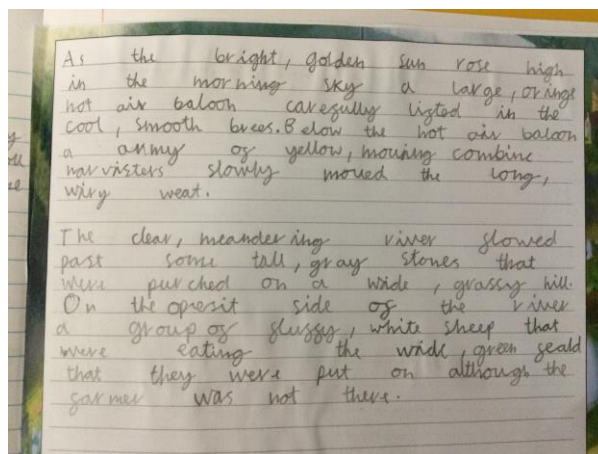 As the bright, golden sun rose high
in the morning sky a large, oringe
hot air baloon carefully lifted in the
cool, smooth brees. Below the hot air baloon
a army of yellow, mouing combine
harvisters slowly moued the long,
wiry weat.
The clear, meandering river flowed
past some tall, gray stones that
were purched on a wide, grassy hill.
On the opresit side of the river
a group of fluffy, white sheep that
were eating the wide, green feald
that they were put on although the
farmer was not there.